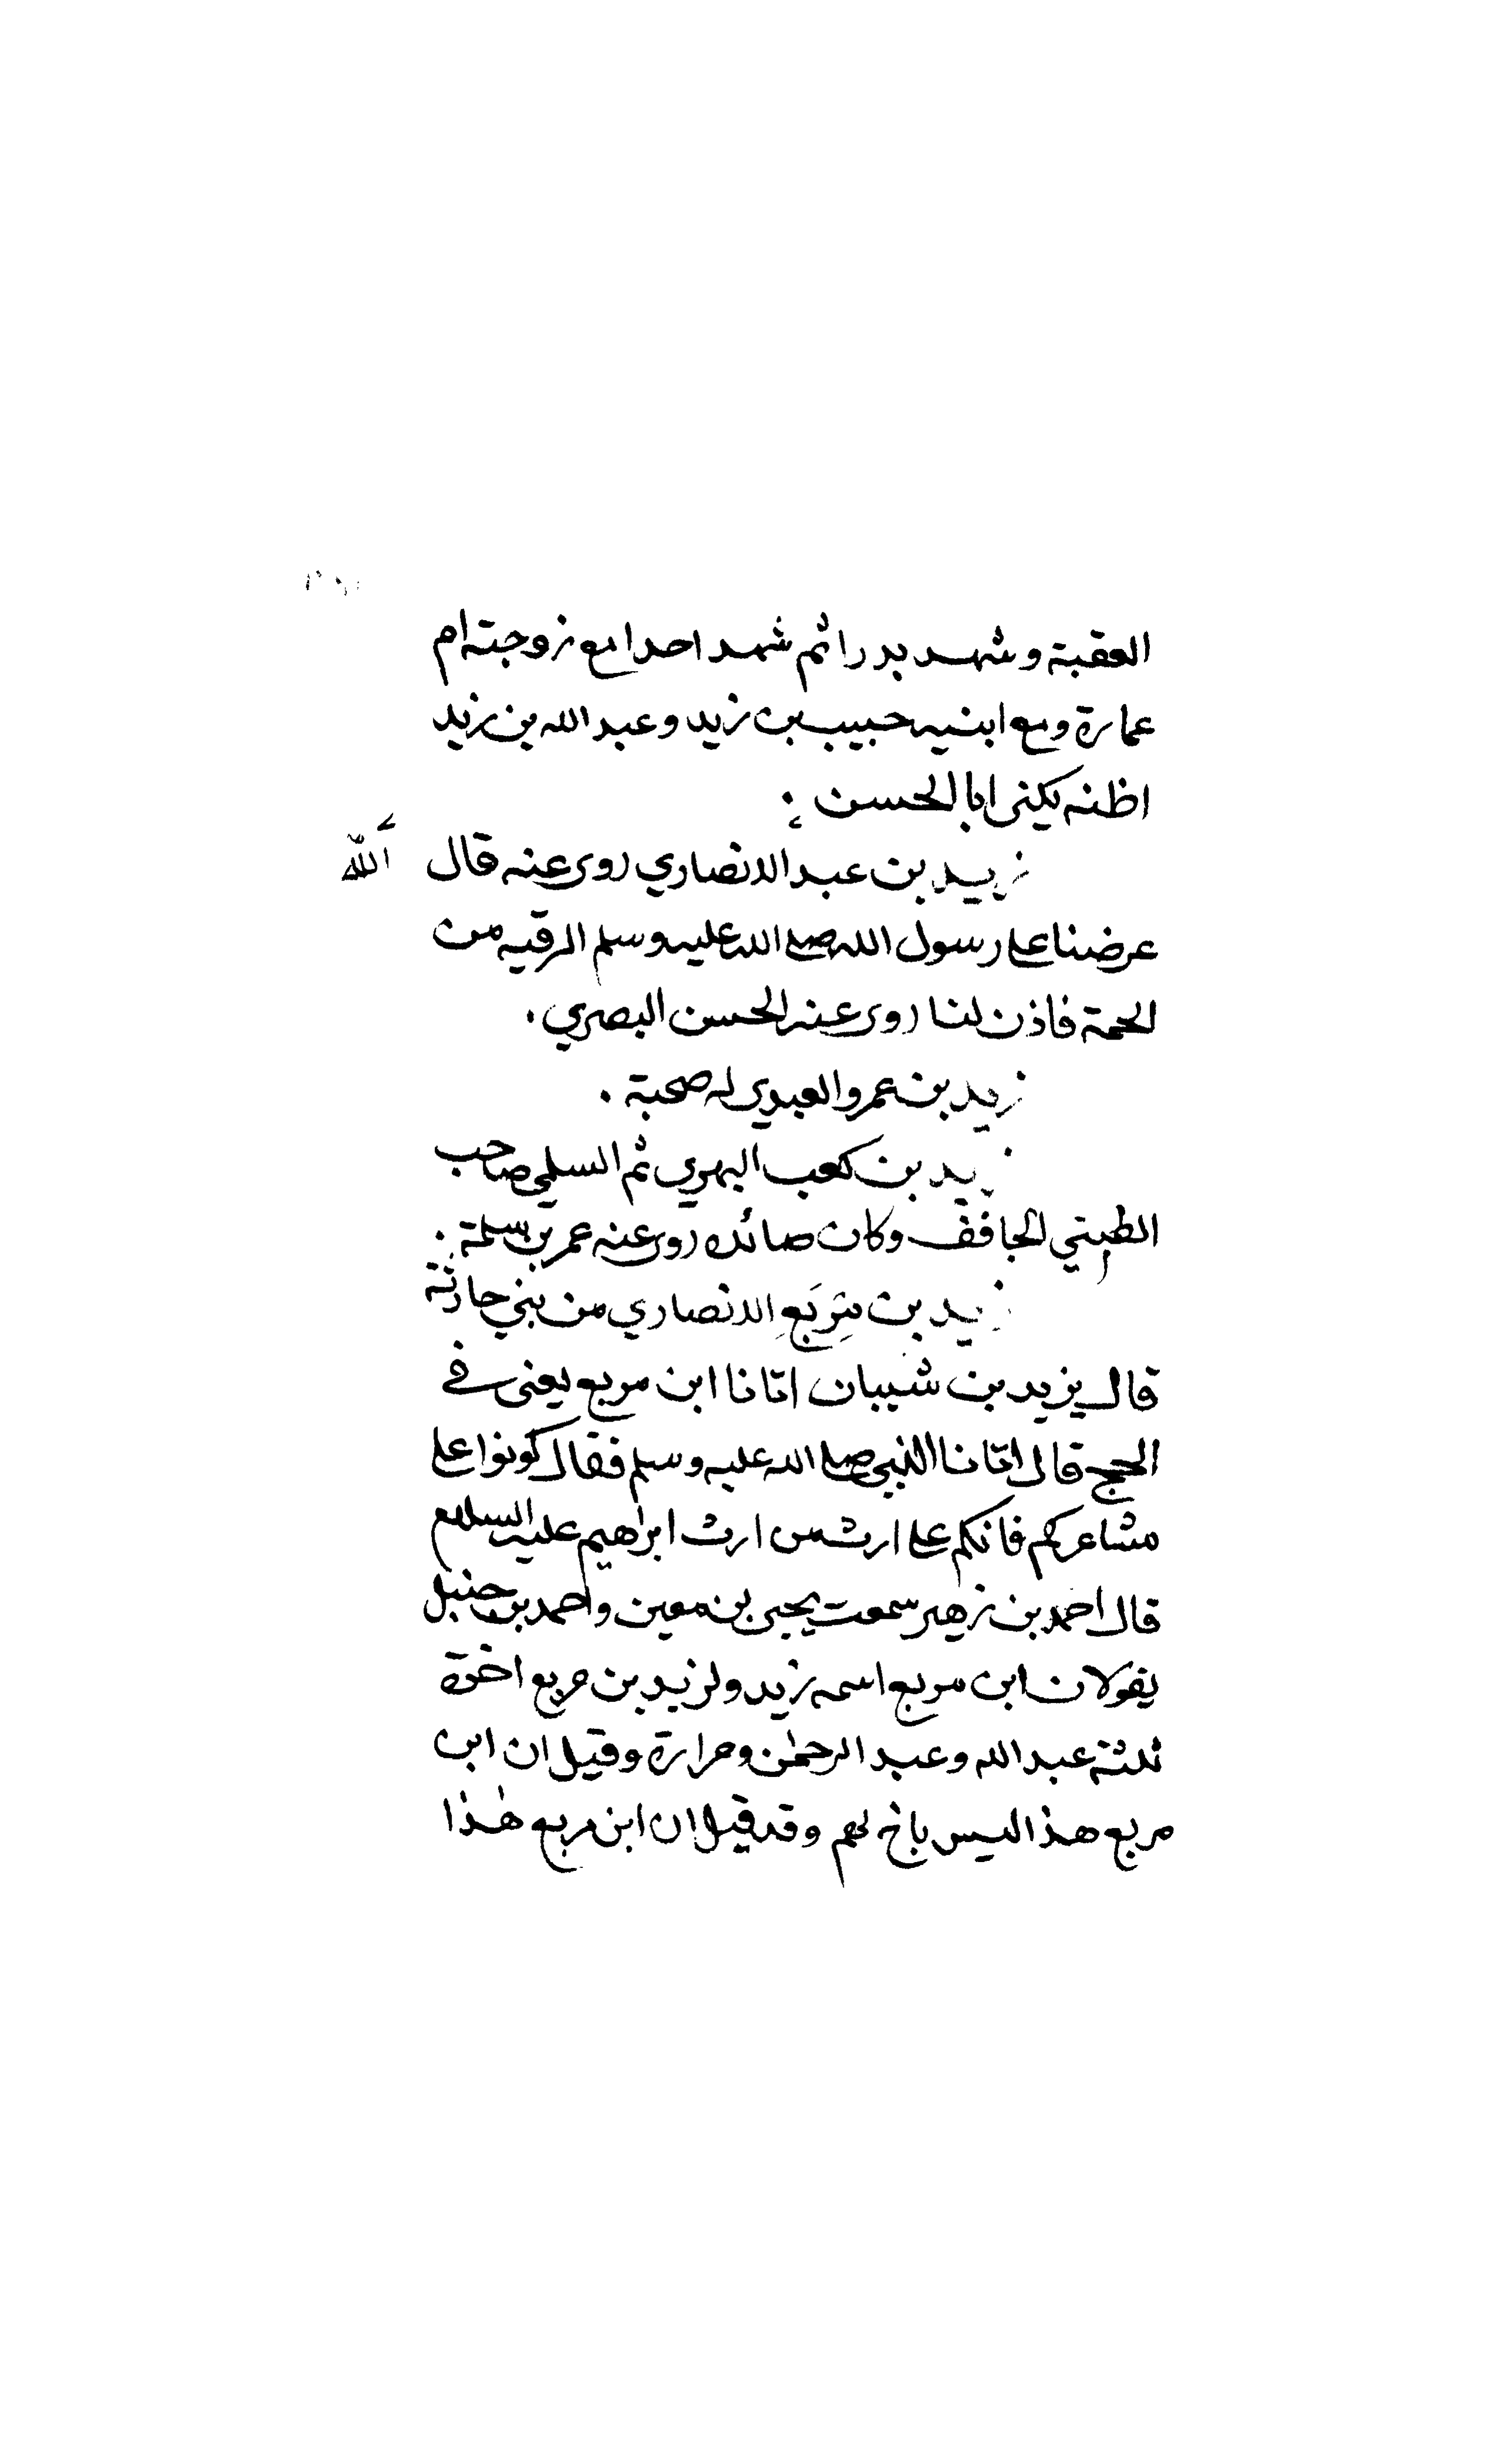 العقبة وشهد بدرا ثم شهد احدا مع زوجته ام
عمارة ومع ابنيه حبيب بن زيد وعبد الله بن زيد
اظنه يكنى ابا الحسن .
زيد بن عبد الانصاري روى عنه قال
الله
عرضنا على رسول الله صلى الله عليه وسلم الرقيه من
الحمة فاذن لنا روى عنه الحسن البصري .
زيد بن عمرو العبدي له صحبة .
زيد بن كعب البهزي ثم السلمي صاحب
الظبي الحاقف وكان صائده روى عنه عمر بن سلمة .
زيد بن مِربَعِ الانصاري من بني حارثة
قال يزيد بن شيبان اتانا ابن مربع يعنى في
الحج قال اتانا النبي صلى الله عليه وسلم فقال كونوا على
مشاعركم فانكم على ارث من ارث ابراهيم عليه السلام
قال احمد بن زهير سمعت يحيى بن معين واحمد بن حنبل
يقولان ابن مربع اسمه زيد ولزيد بن مربع اخوة
ثلثة عبد الله وعبد الرحمٰن ومرارة وقيل ان ابن
مربع هذا ليس باخ لهم وقد قيل ان ابن مربع هٰذا